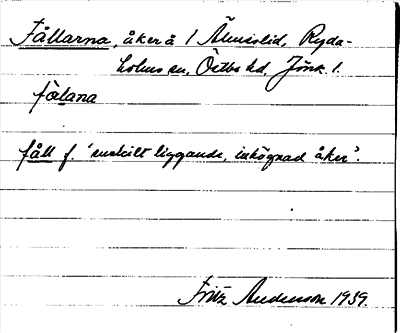 Fållarna, åker å 1 Älmislid, Ryda-
holms sn, Östbo hd, Jönk. l.
fəlana
fåll f. 'enskilt liggande, inhägnad åker'.
Fritz Anderson 1939.